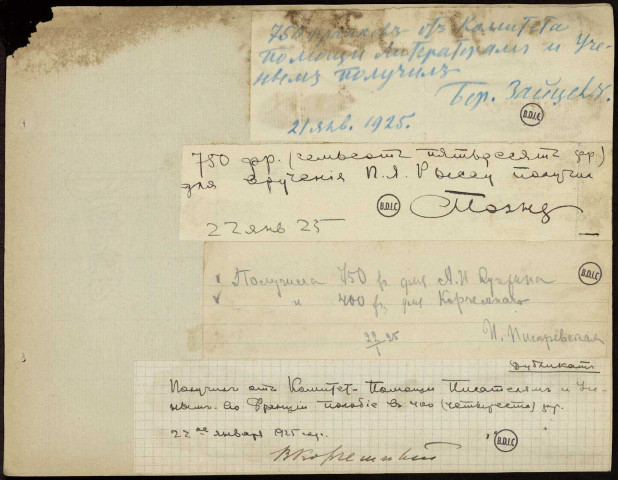 750 франковъ отъ Комитета
помощи Литераторамъ и Уче-
нымъ получилъ
Бор. Зайцевъ.
21 янв. 1925.
B.D.I.C
750 фр. (семьсотъ пятьдесятъ фр.)
для врученія П.Я. Рыссу получил
B.D.I.C
22 янв 25
B.D.I.C
Получила 750 fr для А.И Куприна
и 400 fr для Корчемнаго
22/I 25
Дубликатъ
Получилъ отъ Комитет- Помощи Писателямъ и Уче-
нымъ во Франціи пособіе въ 400 (четыреста) фр.
22ое января 1925 года.
B.D.I.C
ВКорчемный